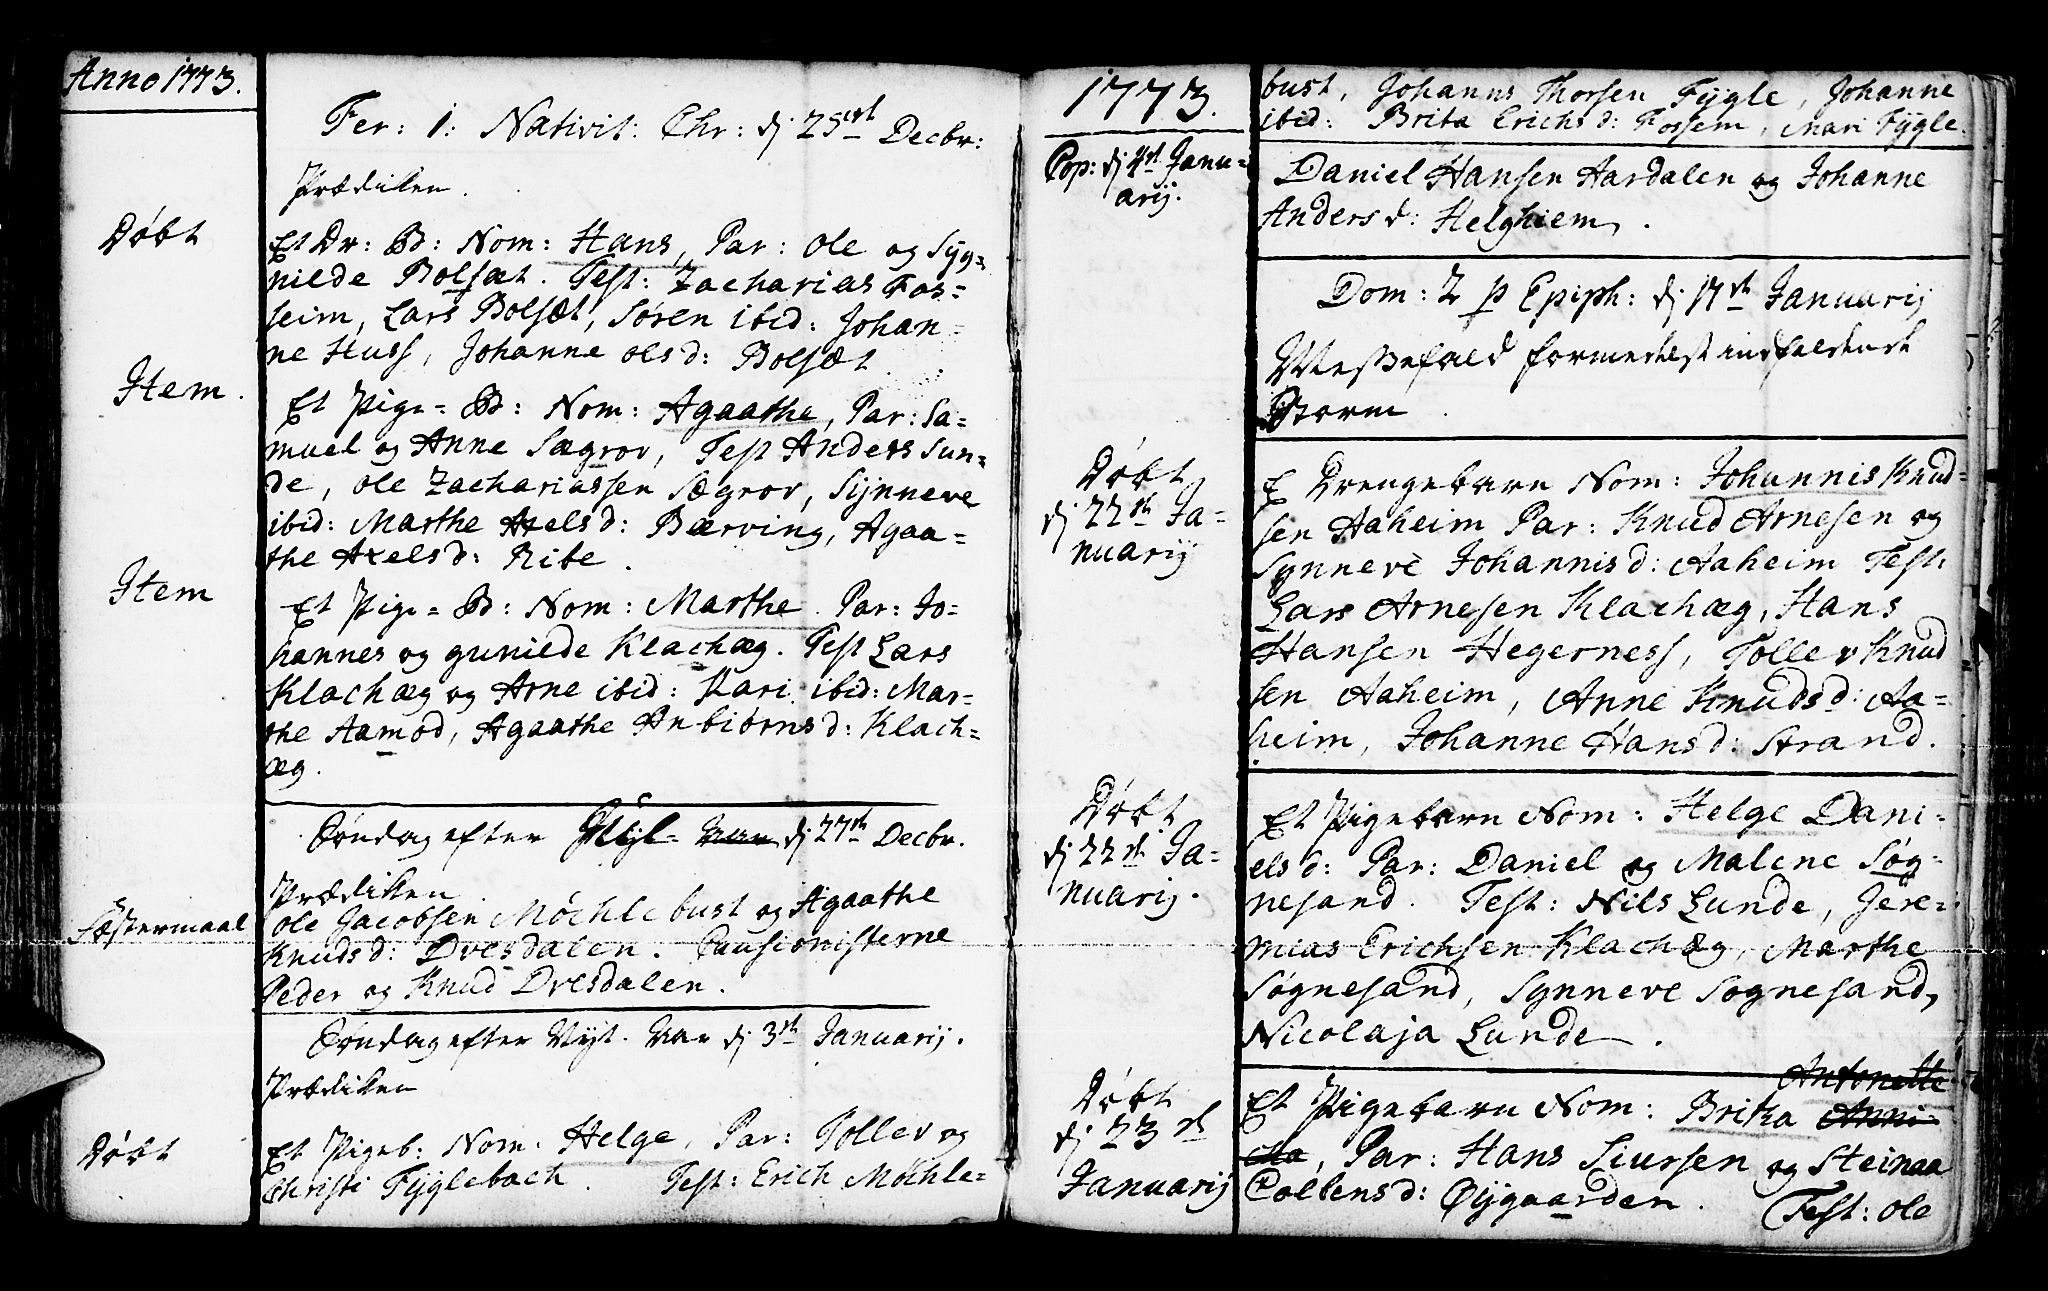 Anno 1773.
Fer: 1: Nativit: Chr: dj 25de Decbr:
Prædiken.
Døbt
Et Dr: B: Nom: Hans, Par: Ole og Syg=
nilde Bolsæt. Test: Zacharias Fos=
seim, Lars Bolsæt, Søren ibid: Johan=
ne Huss, Johanne Olsd: Bolsæt
Item.
Et Pige=B: Nom: Agaathe, Par: Sa=
muel og Anne Sægrov, Test Anders Sun=
de, Ole Zachariassen Sægrov, Synneve
ibid: Marthe Axelsd: Bærving, Agaa=
the Axelsd: Ribe.
Item
Et Pige=B: Nom: Marthe. Par: Jo=
hannes og Gunilde Klachæg. Test Lars
Klachæg og Arne ibid: Kari ibid: Mar=
the Aamod, Agaathe Anbiørnsd: Klach=
æg.
Søndag efter Juul dj 27de Decbr.
Prædiken
Fæstermaal
Ole Jacobsen Møchlebust og Agaathe
Knudsd: Dvesdalen. Cautionisterne
Peder og Knud Dvesdalen.
Søndag efter Nyt. Aar dj 3de Januarij.
Prædiken
Døbt
Et Pigeb: Nom. Helge, Par: Tollev og
Christi Fyglebach. Test: Erich Møchle=
1773.
bust, Johanns Thorsen Fygle, Johanne
ibid: Brita Erichsd: Fossem, Mari Fygle.
Cop: dj 4de Janu=
arij.
Daniel Hansen Aardalen og Johanne
Andersd: Helghiem.
Dom: 2 p Epiph: dj 17de Januarij
Messefald formedelst indfaldende
Storm.
Døbt
dj 22de Ja=
nuarij
E Drengebarn Nom: Johannis Knud=
sen Aaheim Par: Knud Arnesen og
Synneve Johannisd: Aaheim Test:
Lars Arnesen Klachæg, Hans
Hansen Hegerness, Tollev Knud
sen Aaheim, Anne Knudsd: Aa=
heim, Johanne Hansd: Strand.
Døbt
dj 22de Ja=
nuarij.
Et Pigebarn Nom: Helge Dani=
elsd: Par: Daniel og Malene Søg=
nesand. Test: Nils Lunde, Jere=
mias Erichsen Klachæg, Marthe
Søgnesand, Synneve Søgnesand,
Nicolaja Lunde.
Døbt
dj 23de
Januarij
Antonette
Et Pigebarn Nom: Brita Anni=
cka, Par: Hans Siursen og Steinaa
Collensd: Øygaarden. Test: Ole